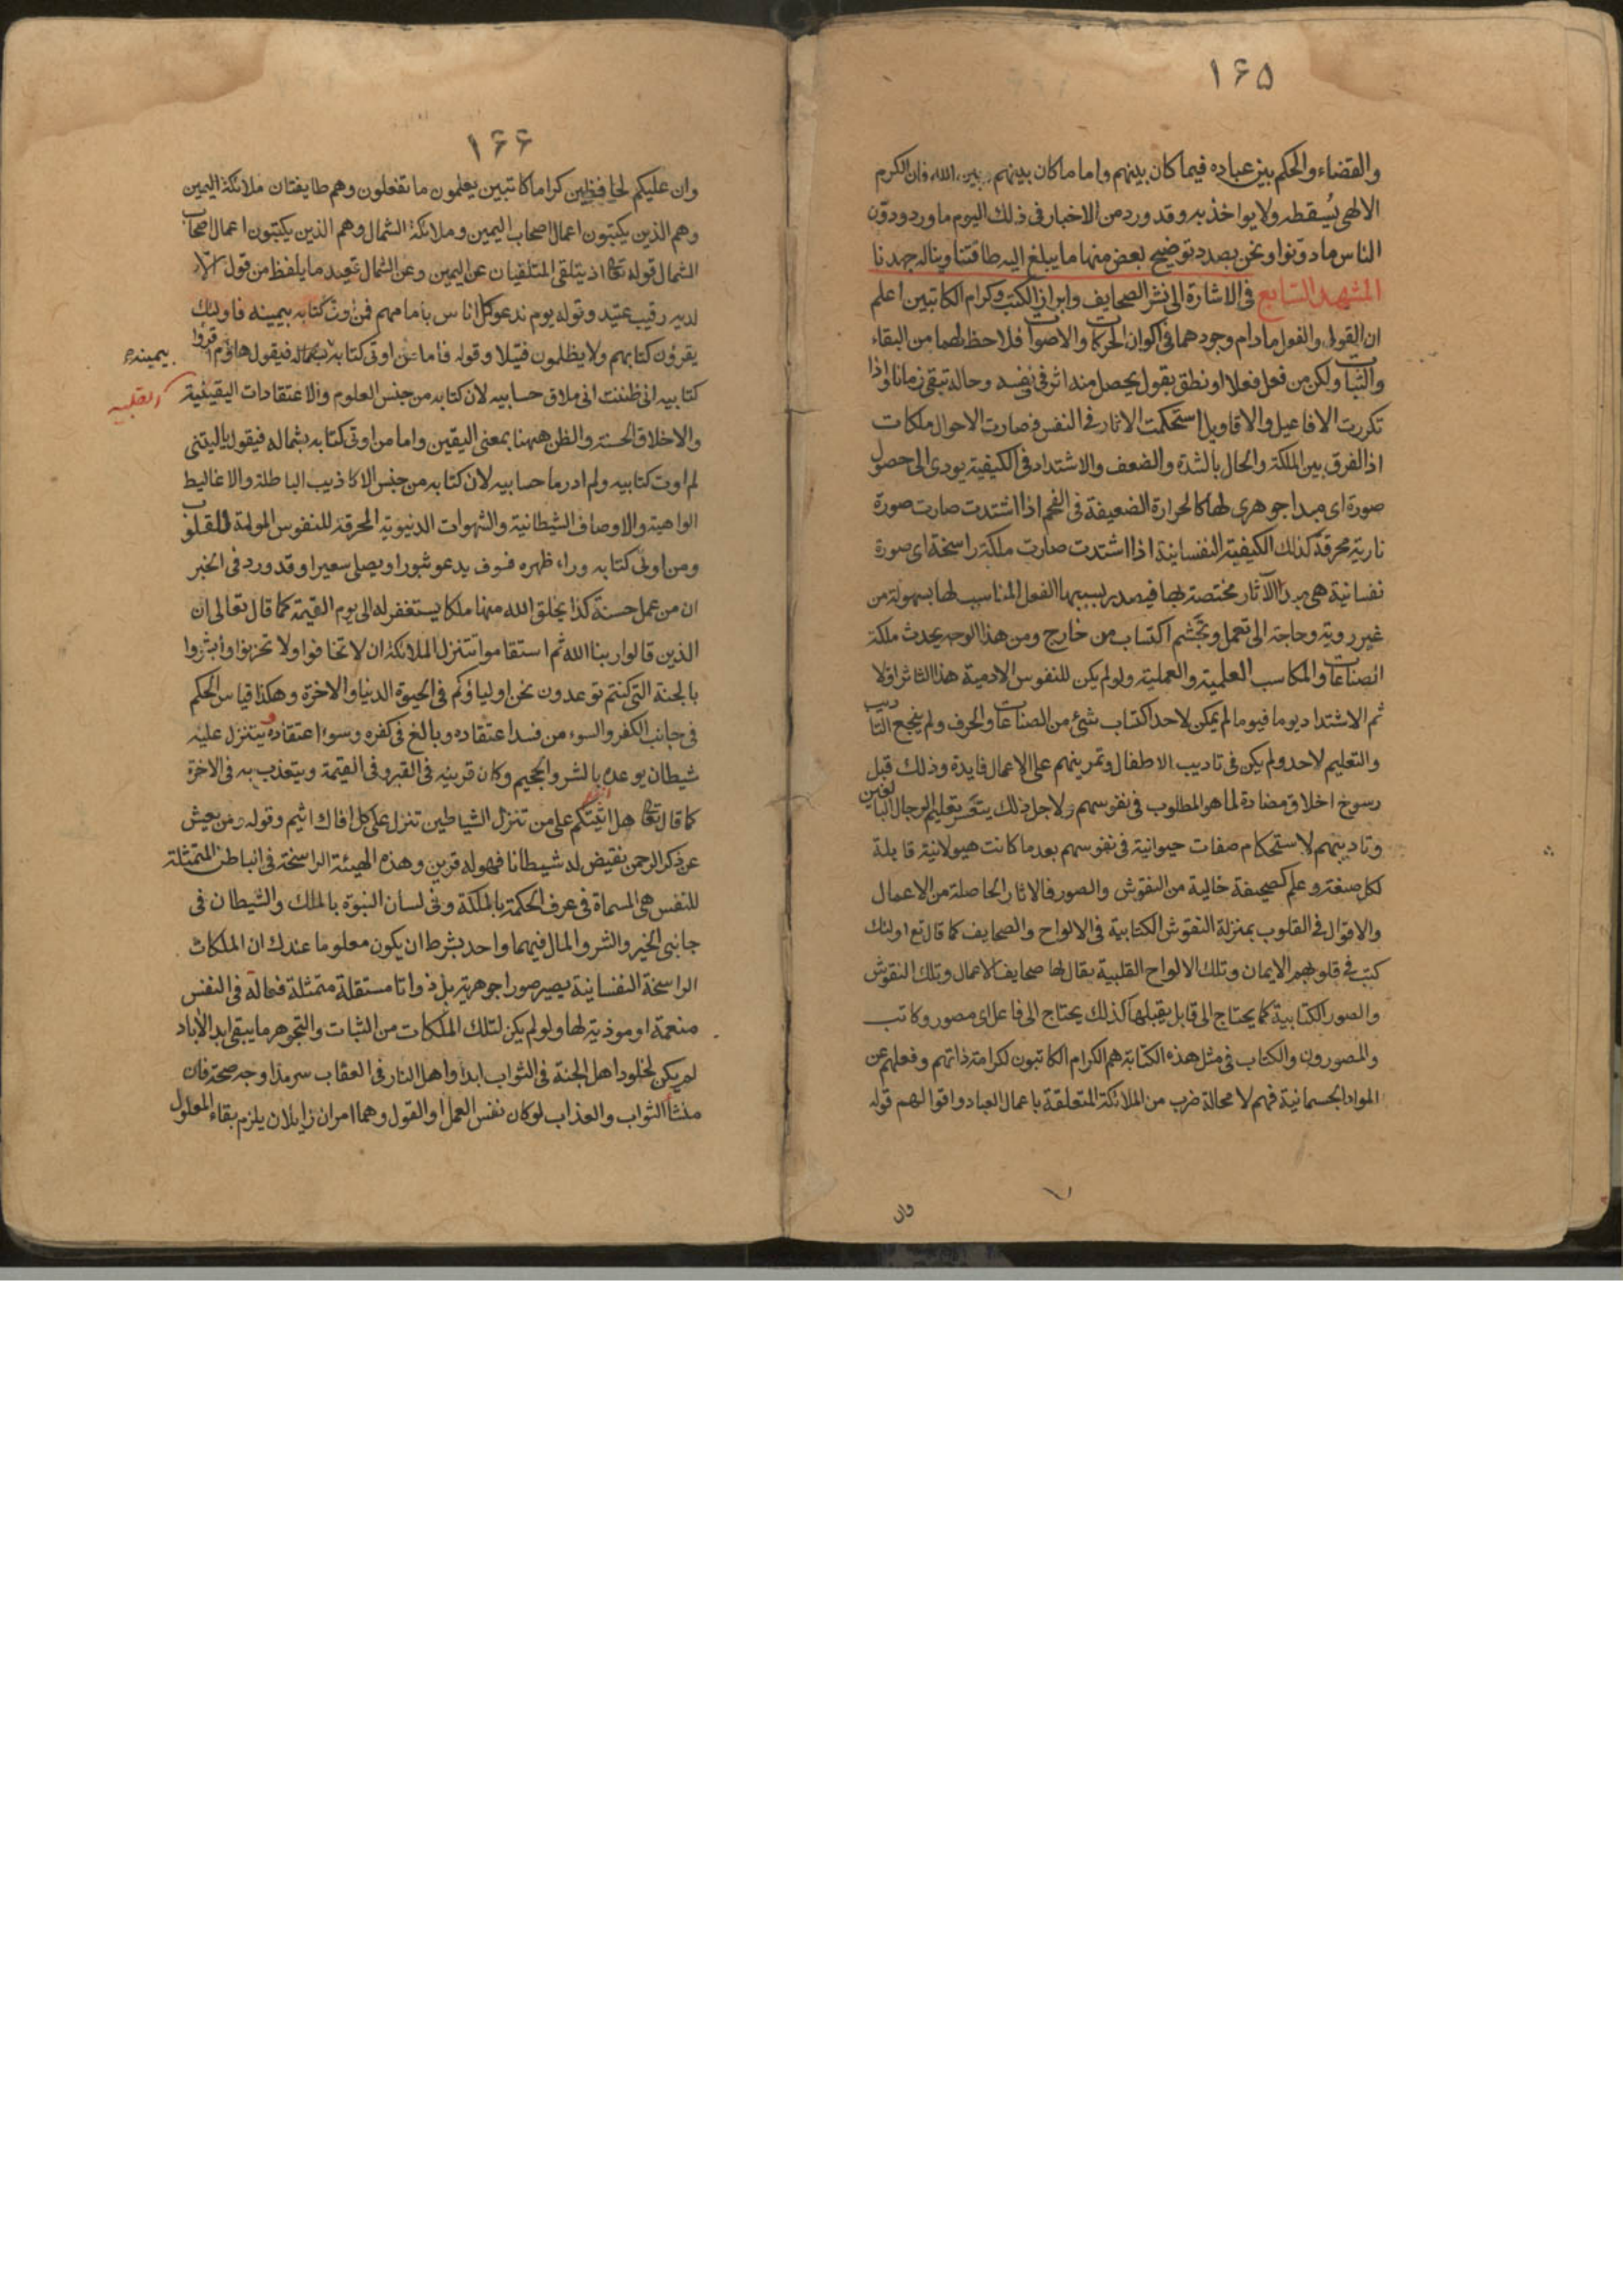 ١٦٥
والقضاء والحكم بين عباده فيما كان بينهم واما ما كان بينهم وبين الله فان الكرم
الالهى يسقطه ولا يواخذ به وقد ورد من الاخبار فى ذلك اليوم ما ورد ودون
الناس ما دونوا ونحن بصدد توضيح بعض منها ما يبلغ اليه طاقتنا ويناله جهدنا
المشهد السابع فى الاشارة الى نشر الصحايف وابراز الكتب وكرام الكاتبين اعلم
ان القول والفعل مادام وجودهما فى اكوان الحركات والاصوات فلا حظ لهما من البقاء
والثبات ولكن من فعل فعلا او نطق بقول يحصل منه اثر فى نفسه وحالة تبقى زمانا واذا
تكررت الافاعيل والاقاويل استحكمت الاثار فى النفس فصارت الاحوال ملكات
اذ الفرق بين الملكة والحال بالشدة والضعف والاشتداد فى الكيفية يودى الى حصول
صورة اى مبدا جوهرى لها كالحرارة الضعيفة فى الفحم اذا اشتدت صارت صورة
نارية محرقة كذلك الكيفية النفسانية اذا اشتدت صارت ملكة راسخة اى صورة
نفسانية هى مبدا لآثار مختصة بها فيصدر بسببها الفعل المناسب لها بسهولة من
غير روية وحاجة الى تعمل وتجشم اكتساب من خارج ومن هذا الوجه يحدث ملكة
الصناعات والمكاسب العلمية والعملية ولو لم يكن للنفوس الادمية هذا التاثر اولا
ثم الاشتداد يوما فيوما لم يمكن لاحد اكتساب شئ من الصناعات والحرف ولم ينجع التاديب
والتعليم لاحد ولم يكن فى تاديب الاطفال وتمرينهم على الاعمال فايدة وذلك قبل
رسوخ اخلاق مضادة لما هو المطلوب فى نفوسهم ولاجل ذلك يتعسر تعليم الرجال البالغين
وتاديبهم لاستحكام صفات حيوانية فى نفوسهم بعد ما كانت هيولانية قابلة
لكل صنعة وعلم كصحيفة خالية من النقوش والصور فالاثار الحاصلة من الاعمال
والاقوال فى القلوب بمنزلة النقوش الكتابية فى الالواح والصحايف كما قال تع اولئك
كتب فى قلوبهم الايمان وتلك الالواح القلبية يقال لها صحايف الاعمال وتلك النقوش
والصور الكتابية كما يحتاج الى قابل يقبلها كذلك يحتاج الى فاعل اى مصور وكاتب
والمصورون والكتاب فى مثل هذه الكتابة هم الكرام الكاتبون لكرامة ذاتهم وفعلهم عن
المواد الجسمانية فهم لا محالة ضرب من الملائكة المتعلقة باعمال العباد واقوالهم قوله
وان
١٦٦
وان عليكم لحافظين كراما كاتبين يعلمون ما تفعلون وهم طايفتان ملائكة اليمين
وهم الذين يكتبون اعمال اصحاب اليمين وملائكة الشمال وهم الذين يكتبون اعمال اصحاب
الشمال قوله تعالى اذ يتلقى المتلقيان عن اليمين وعن الشمال قعيد ما يلفظ من قول الا
لديه رقيب عتيد وقوله يوم ندعو كل اناس بامامهم فمن اوتى كتابه بيمينه فاولئك
يقرؤن كتابهم ولا يظلمون فتيلا وقوله فاما من اوتى كتابه بشماله فيقول هاؤم اقرؤا
بيمينه
كتابيه انى ظننت انى ملاق حسابيه لان كتابه من جنس العلوم والاعتقادات اليقينية
القلبيه
والاخلاق الحسنة والظن ههنا بمعنى اليقين واما من اوتى كتابه بشماله فيقول ياليتنى
لم اوت كتابيه ولم ادر ما حسابيه لان كتابه من جنس الاكاذيب الباطلة والاغاليط
الواهية والاوصاف الشيطانية والشهوات الدنيوية المحرقة للنفوس المولمة للقلوب
ومن اوتى كتابه وراء ظهره فسوف يدعو ثبورا ويصلى سعيرا وقد ورد فى الخبر
ان من عمل حسنة كذا يخلق الله منها ملكا يستغفر له الى يوم القيمة كما قال تعالى ان
الذين قالوا ربنا الله ثم استقاموا تتنزل الملائكة ان لا تخافوا ولا تحزنوا وابشروا
بالجنة التى كنتم توعدون نحن اولياؤكم فى الحيوة الدنيا والاخرة وهكذا قياس الحكم
فى جانب الكفر والسوء من فسد اعتقاده وبالغ فى كفره وسوء اعتقاده يتنزل عليه
شيطان يوعده بالشر والجحيم وكان قرينه فى القبر وفى القيمة ويتعذب به فى الاخرة
كما قال تعالى هل انبئكم على من تنزل الشياطين تنزل على كل افاك اثيم وقوله ومن يعش
عن ذكر الرحمن نقيض له شيطانا فهو له قرين وهذه الهيئة الراسخة فى انباطن المتمثلة
للنفس هى المسماة فى عرف الحكمة بالملكة وفى لسان النبوة بالملك والشيطان فى
جانبى الخير والشر والمال فيهما واحد بشرط ان يكون معلوما عندك ان الملكات
الراسخة النفسانية يصير صورا جوهرية بل ذواتا مستقلة متمثلة فعالة فى النفس
منعمة او موذية لها ولو لم يكن لتلك الملكات من الثبات والتجوهر ما يبقى ابد الآباد
لم يكن لخلود اهل الجنة فى الثواب ابدا واهل النار فى العقاب سرمدا وجه صحة فان
منشأ الثواب والعذاب لو كان نفس العمل او القول وهما امران زايلان يلزم بقاء المعلول